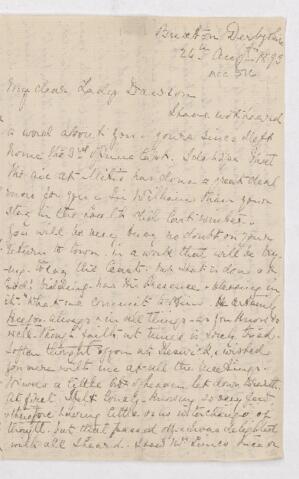 Buxton Derbyshire
26th Augst 1893
My dear Lady Dawson
I have not heard
a word about you - yours since I left
home the 3rd of June last. I do hope that
the air at Métis has done a great deal
more for you & Sir William than your
stay in the South did last winter.
You will be very busy no doubt on your
return to town, in a work that will be
to say the least. but that is done at
God's bidding has His Presence & blessing in
it. What we commit to Him He
keeps always & in all things - as you know so
well. though faith at times is sorely tried.
I often thought of you at Keswick, & wished
you were with me at all the meetings.
It was a little bit of heaven let down to earth
at first I felt lonely knowing so very few
& therefore having little or no interchange of
thought. but that passed off & I was delighted
with all I heard. I saw Mr once or